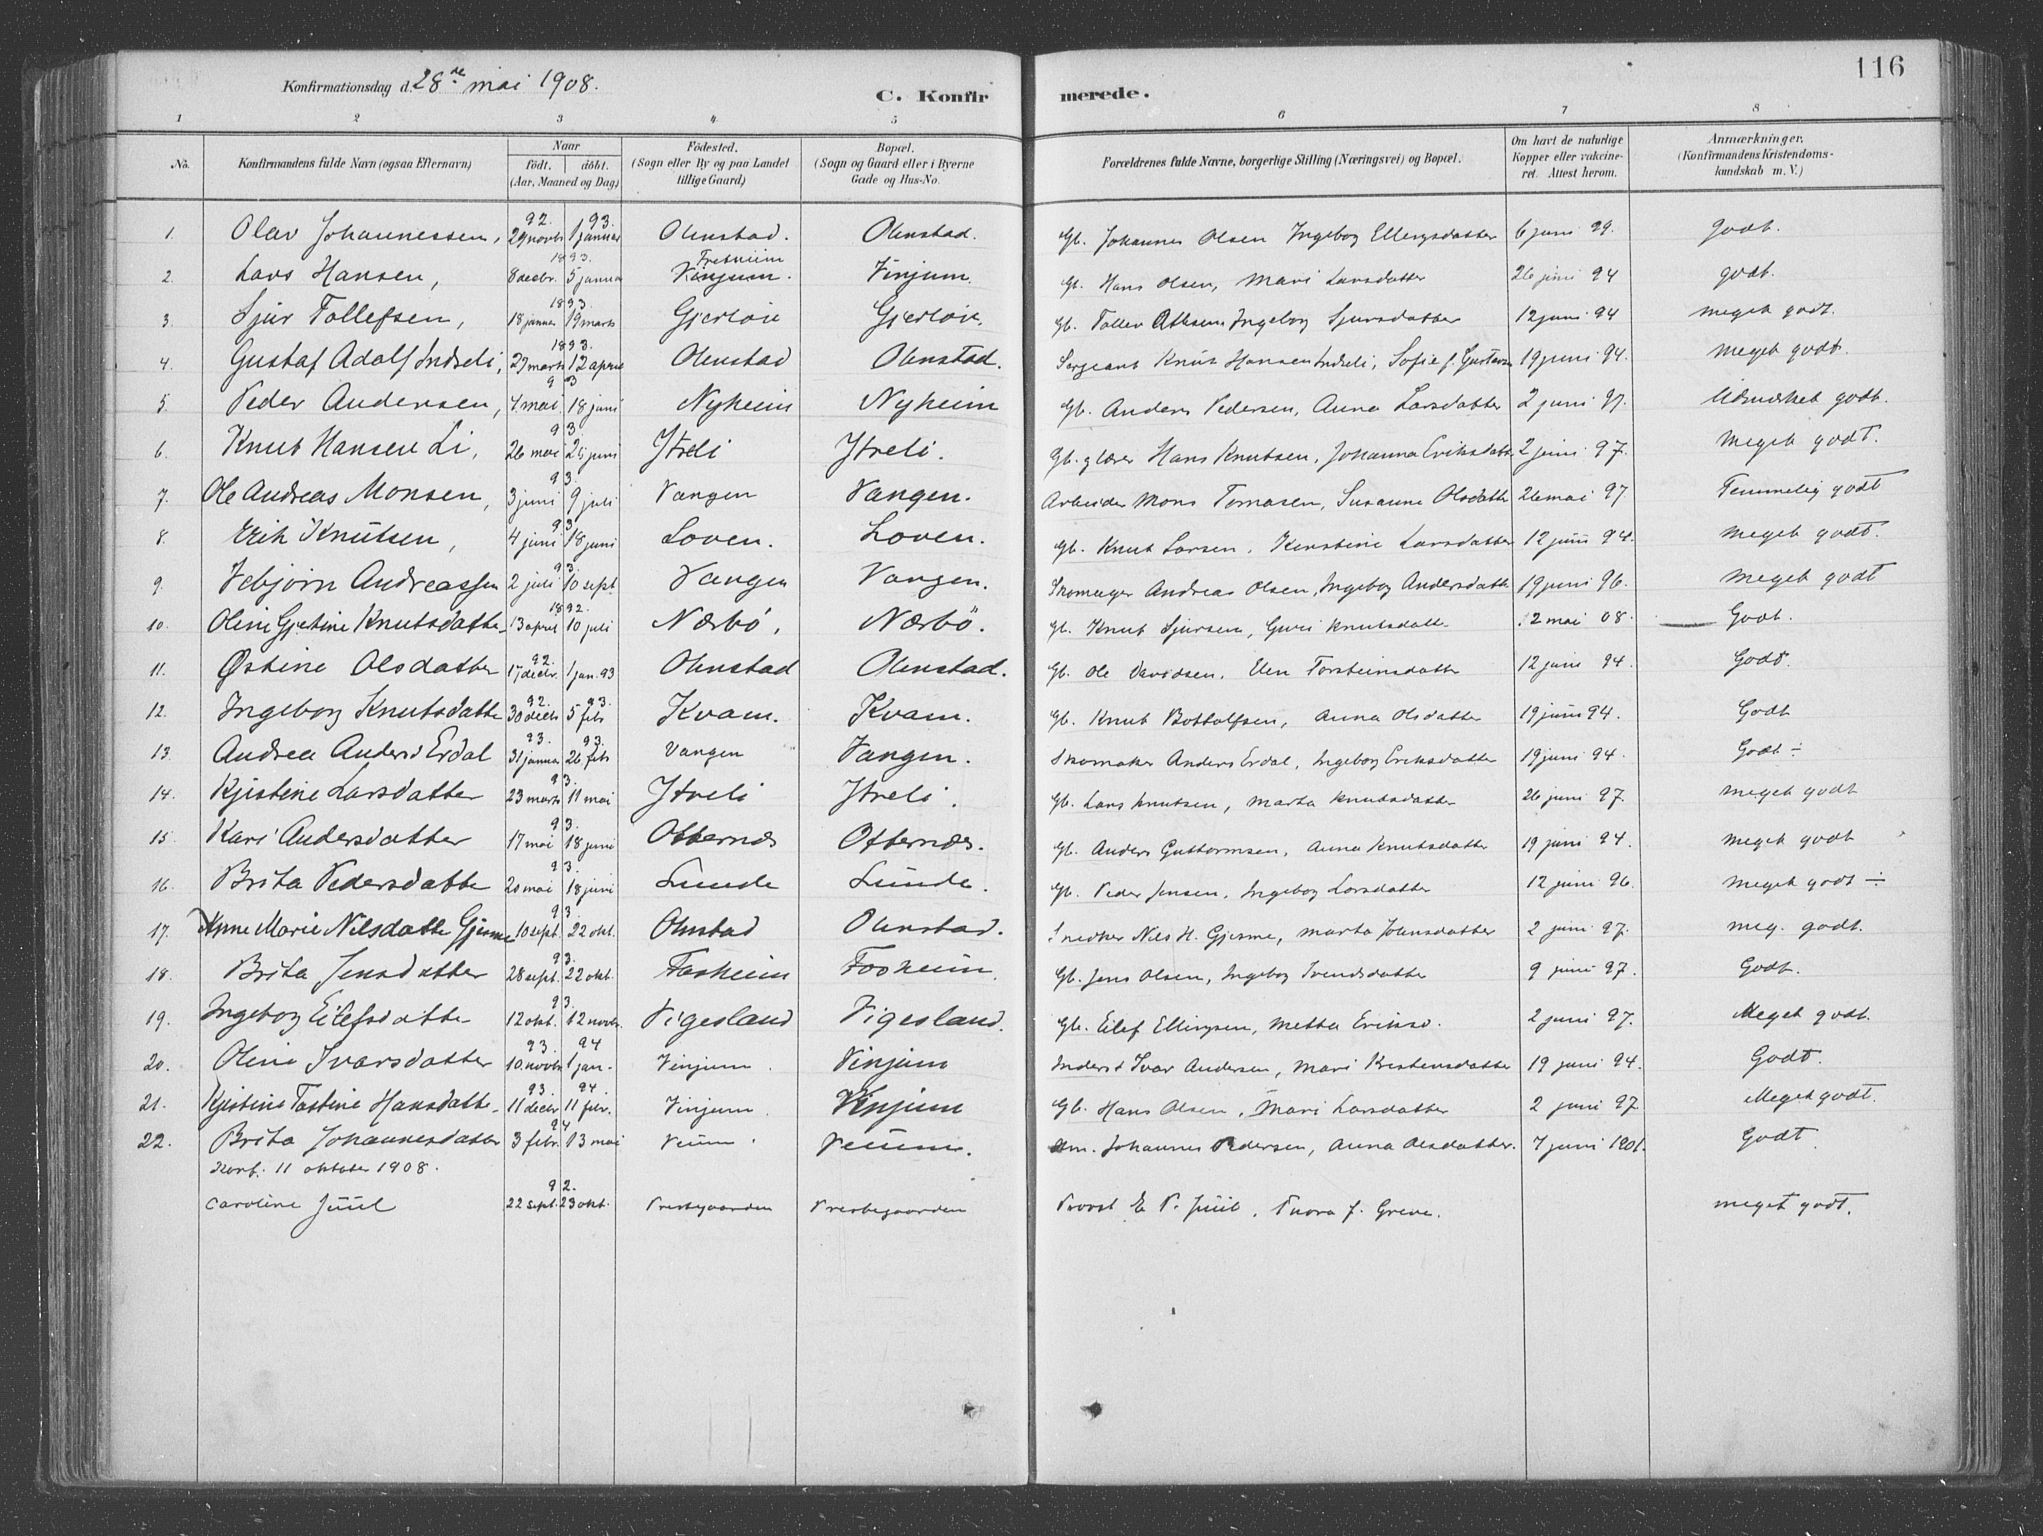 116
Konfirmationsdag d. 28de mai 1908.
C. Konfirmerede.
1 2 3 4 5 6 7 8
No. Konfirmandens fulde Navn (ogsaa Efternavn) Naar født. døbt. (Aar, Maaned og Dag) Fødested. (Sogn eller By og paa Landet tillige Gaard) Bopæl. (Sogn og Gaard eller i Byerne Gade og Hus-No. Forældrenes fulde Navne, borgerlige Stilling (Næringsvei) og Bopæl. Om havt de naturlige Kopper eller vakcineret. Attest herom. Anmærkninger. (Konfirmandens Kristendomskundskab m. V.)
1. Olav Johannessen, 92. 29 novbr 93. 1 januar Ohnstad. Ohnstad. Gb. Johannes Olsen Ingebog Ellingsdatter 6 juni 99. godt.
2. Lars Hansen, 8 decbr. 1893. 5 januar Fretheim Vinjum. Vinjum. Gb. Hans Olsen, Mari Larsdatter 26 juni 94 godt.
3. Sjur Tollefsen, 1893. 18 januar 19 marts Gjerløie Gjerløie. Gb. Tollev Ingebog Sjursdatter 12 juni 94 meget godt.
4. Gustaf Adolf Indseli, 1893. 27 marts 12 april Ohnstad Ohnstad. Sergeant Knut Hansen Indseli, Sofie f. Gustavsen 19 juni 94. meget godt.
5. Peder Andersen, 93 4 mai 18 juni Nyheim Nyheim Gb. Anders Pedersen, Anna Larsdatter 2 juni 97. Udmærket godt.
6. Knut Hansen Li, 93. 26 mai 24 juni Ytreli Ytreli. Gb. g lærer Hans Knutsen, Johanna Eriksdatter 2 juni 97. meget godt.
7. Ole Andreas Monsen, 93. 3 juni 9 juli Vangen Vangen. Arbeider Mons Tomasen, Susanne Olsdatter 26 mai 97 Temmelig godt
8. Erik Knutsen, 93 4 juni 18 juni Loven. Loven. Gb. Knut Larsen, Kirstine Larsdatter 12 juni 94. meget godt.
9. Vebjørn Andreassen 93. 2 juli 10 sept. Vangen Vangen. Skomager Andreas Olsen, Ingebog Andersdatter 19 juni 96. meget godt
10. Oline Gjertine Knutsdatter 1892. 13 april 10 juli Nærbö, Nærbö. Gb. Knut Sjursen, Guri Knutsdatter 12 mai 08. Godt.
11. Østine Olsdatter 92. 17 decbr. 1 jan. 93 Ohnstad Ohnstad. Gb. Ole Davidsen, Elen Torsteinsdatter 12 juni 94. Godt.
12. Ingebog Knutsdatter 92. 30 decbr 93. 5 febr Kvam. Kvam. Gb. Knut Bottolfsen, Anna Olsdatter 19 juni 94. Godt
13. Andrea Andersd Erdal 93. 31 januar 93. 26 febr Vangen Vangen. Skomaker Anders Erdal, Ingebog Eriksdatter 19 juni 94. Godt ÷
14. Kjestine Larsdatter 93. 23 marts 11 mai Ytreli Ytreli. Gb. Lars Knutsen, Marta Knutsdatter 26 juni 97. meget godt
15. Kari Andersdatter 93. 17 mai 18 juni Otternæs Otternæs. Gb. Anders Guttormsen, Anna Knutsdatter 19 juni 94. meget godt
16. Brita Pedersdatter 93. 20 mai 18 juni Lunde Lunde. Gb. Peder Jensen, Ingebog Larsdatter 12 juni 96. meget godt ÷
17. Anne Marie Nilsdatter Gjesme 93. 10 sept. 22 okt. Ohnstad Ohnstad. Snedker Nils H. Gjesme, Marta Johnsdatter 2 juni 97. meg. godt.
18. Brita Jensdatter 93. 28 sept. 22 okt. Fosheim Fosheim. Gb. Jens Olsen, Ingebog Svendsdatter 9 juni 97. Godt.
19. Ingebog Eilefsdatter 93. 12 okt. 12 novbr. Vigesland Vigesland. Gb. Eilef Ellingsen, Metta Eriksd. 2 juni 97. Meget godt.
20. Oline Ivarsdatter 93. 10. novbr 94 1 jan. Vinjum. Vinjum Inderst Ivar Andersen, Mari Kristensdatter 19 juni 94. Godt.
21. Kjistine Tostine Hansdatter. 93. 11 decbr 94. 11 febr. Vinjum. Vinjum Gb. Hans Olsen, Mari Larsdatter 2 juni 97. Meget godt.
22. Brita Johannesdatter 94 3 febr. 13 mai Veum. Veum. Johannes Pedersen, Anna Olsdatter. 7 juni 1901. Godt
Konf. 11 oktober 1908.
Caroline Juul 92. 22 sept. 23 okt. Prestegaarden Prestegaarden Provst E. P. Juul, Thora f. Greve. meget godt.